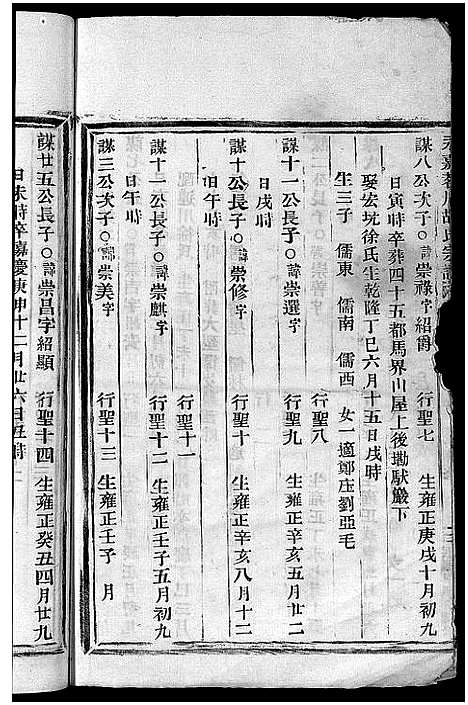 謀八公次子○諱崇祿字紹爵 行聖七 生雍正庚戌十月初九
日寅時卒葬四十五都馬界山屋上後墈狀巖下
娶宏坑徐氏生乾隆丁巳六月十五日戌時
生三子 儒東 儒南 儒西 女一適鄭庄劉亞毛
行聖八
謀十一公長子○諱崇選字 行聖九 生雍正辛亥五月廿二
日戌時
謀十公長子○諱崇修字 行聖十 生雍正辛亥八月十二
日午時
行聖十一
謀十一公次子○諱崇麒字 行聖十二 生雍正壬子五月初九
日午時
謀三公次子○諱崇美字 行聖十三 生雍正壬子 月
謀廿五公長子○諱崇昌字紹顯 行聖十四 生雍正癸丑四月廿九
日未時卒嘉慶庚申十二月廿六日丑時